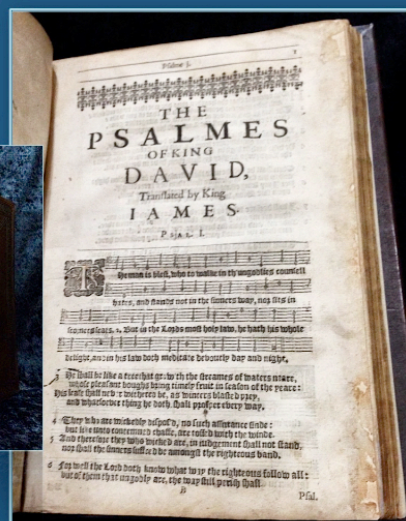 Psalme
1
THE
PSALMES
OF KING
DAVID,
Translated by King
IAMES.
PSAL. I.
The man is blest, who to walke in th'ungodlies counsell
hates, and stands not in the sinners way, nor sits in
scorners seats. 2. But in the Lords most holy law, he hath his whole
delight, and in his law doth meditate devoutly day and night,
3 He shall be like a tree that grow'th the streames of waters neare,
whose pleasant boughs bring timely fruit in season of the yeare:
His leafe shall never withered be, as winters blasted prey,
and whatsoever thing he doth shall prosper every way.
4 They who are wickedly dispos'd, no such assurance finde:
but like unto contemned chaffe, are tossed with the winde.
5 And therefore they who wicked are, in iudgement shall not stand,
nor shall the sinners suffred be amongst the righteous band.
6 For well the Lord doth know what way the righteous follow all:
but of them that ungodly are, the way still perish shall.
B
Psal.